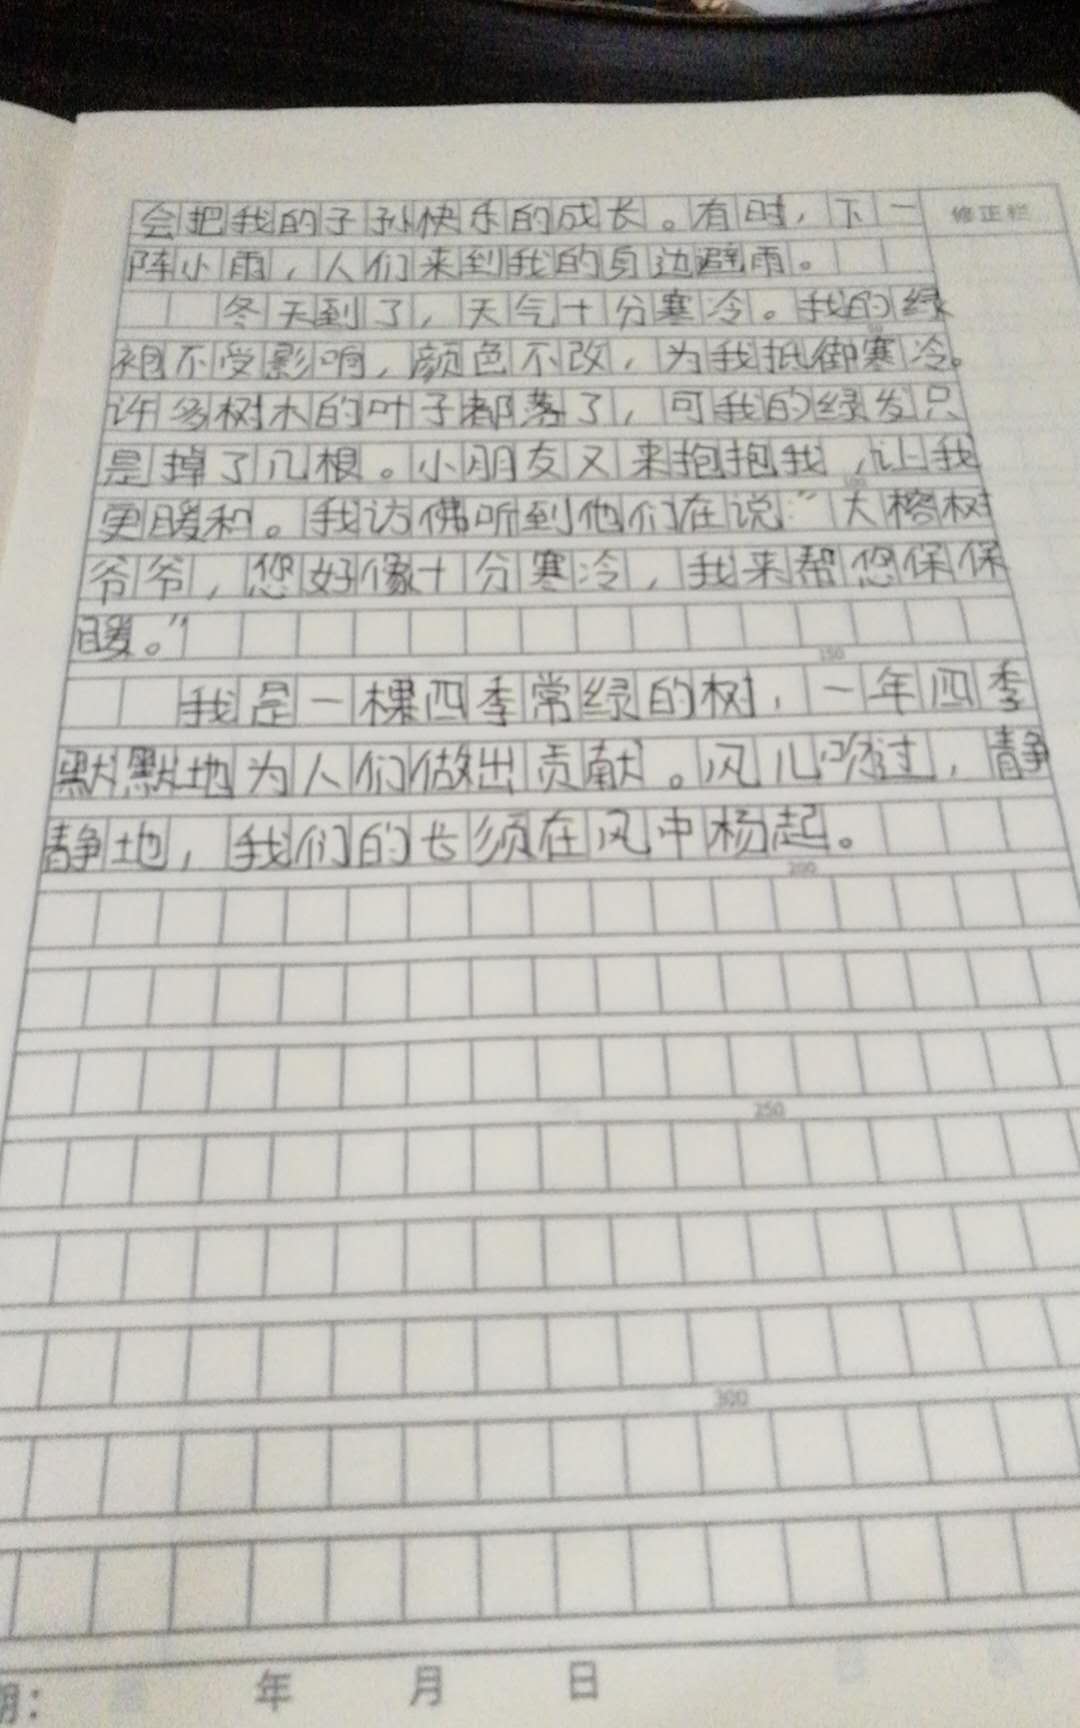 会把我的子孙快乐的成长。有时，下一
修正栏
阵小雨，人们来到我的身边避雨。
冬天到了，天气十分寒冷。我的绿
不受影响，颜色不改，为我抵御寒冷。
50
许多树木的叶子都落了，可我的绿发只
是掉了几根。小朋友又来抱抱我，让我
100
更暖和。我访佛听到他们在说：“大榕树
爷爷，您好像十分寒冷，我来帮您保保
暖。”
150
我是一棵四季常绿的树，一年四季
默默地为人们做出贡献。风儿吹过，静
静地，我们的长须在风中杨起。
200
250
300
期：　年　月　日